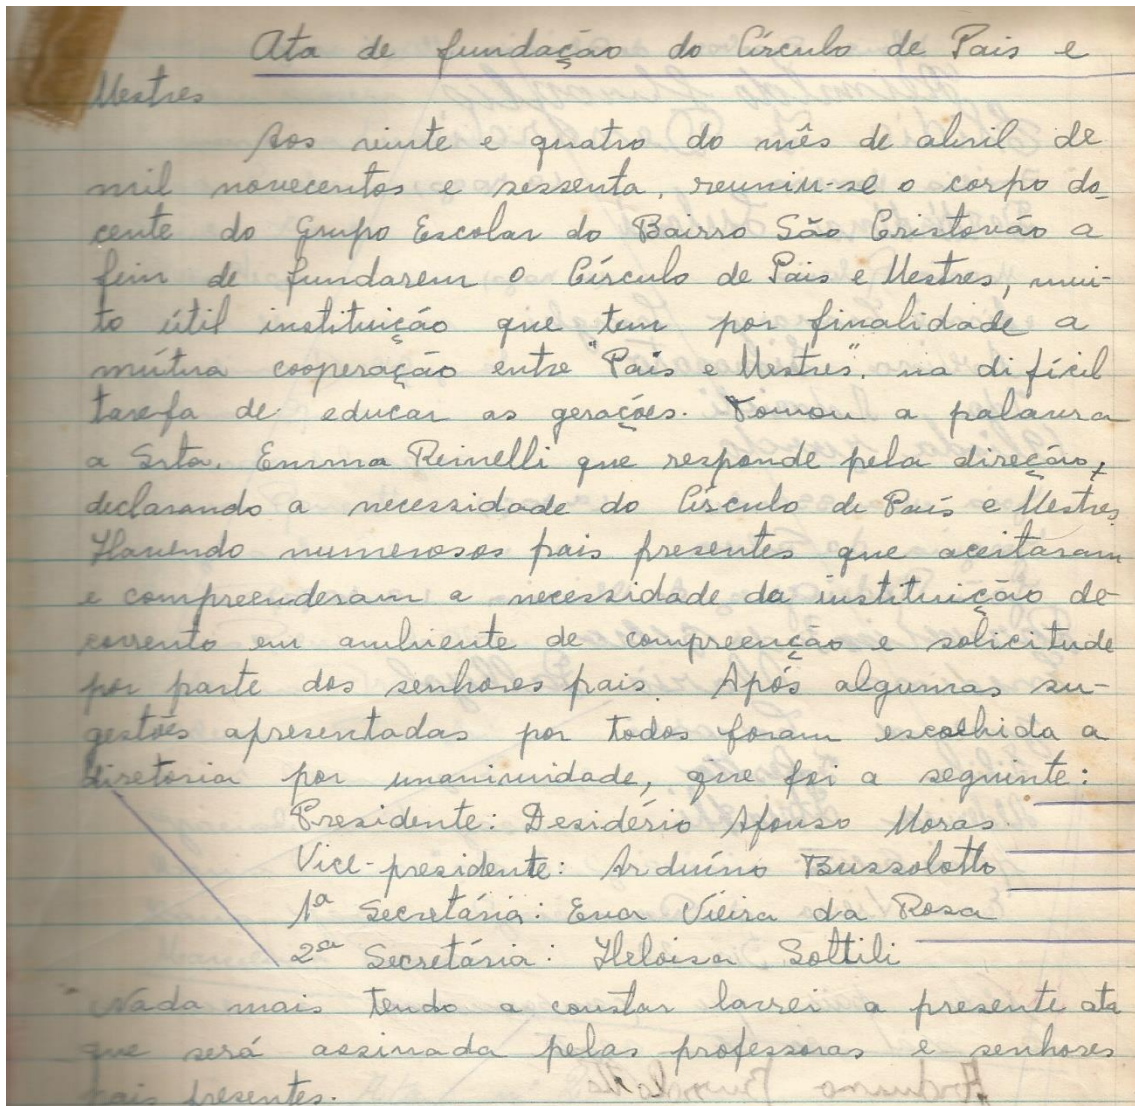 Ata de fundação do Círculo de Pais e
Mestres
Aos vinte e quatro do mês de abril de
mil novecentos e sessenta, reuniu-se o corpo do-
cente do Grupo Escolar do Bairro São Cristovão a
fim de fundarem o Círculo de Pais e Mestres, mui-
to útil instituição que tem por finalidade a
mútua cooperação entre "Pais e Mestres", na difícil
tarefa de educar as gerações. Tomou a palavra
a Srta. Emma Reinelli que responde pela direção,
declarando a necessidade do Círculo de Pais e Mestres
Havendo numerosos pais presentes que aceitaram
e compreenderam a necessidade da instituição de-
corrento em ambiente de compreenção e solicitude
por parte dos senhores pais. Após algumas su-
gestões apresentadas por todos foram escolhida a
diretoria por unanimidade, que foi a seguinte:
Presidente: Desidério Afonso Moras.
Vice-presidente: Arduíno Bussolotto
1ª Secretária: Eva Vieira da Rosa
2ª Secretária: Heloisa Soltili
Nada mais tendo a constar lavrei a presente ata
que será assinada pelas professoras e senhores
pais presentes.